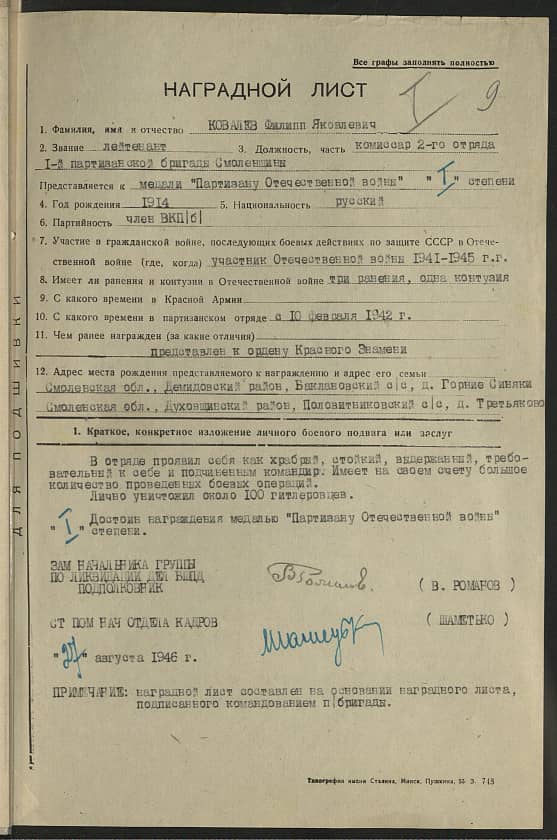 Все графы заполнять полностью
НАГРАДНОЙ ЛИСТ
I 9
1. Фамилия, имя и отчество КОВАЛЕВ Филипп Яковлевич
2. Звание лейтенант 3. Должность, часть комиссар 2-го отряда
I-й партизанской бригады Смоленщины
Представляется к медали "Партизану Отечественной войны" "I" степени
4. Год рождения 1914 5. Национальность русский
6. Партийность член ВКП/б/
7. Участие в гражданской войне, последующих боевых действиях по защите СССР в Отече-
ственной войне (где, когда) участник Отечественной войны 1941-1945 г.г.
8. Имеет ли ранения и контузии в Отечественной войне три ранения, одна контузия
9. С какого времени в Красной Армии
10. С какого времени в партизанском отряде с 10 февраля 1942 г.
11. Чем ранее награжден (за какие отличия)
представлен к ордену Красного Знамени
12. Адрес места рождения представляемого к награждению и адрес его семьи
Смоленская обл., Демидовский район, Баклановский с/с, д. Горние Синяки
Смоленская обл., Духовщинский район, Половитниковский с/с, д. Третьяково
1. Краткое, конкретное изложение личного боевого подвига или заслуг
В отряде проявил себя как храбрый, стойкий, выдержанный, требо-
вательный к себе и подчиненным командир. Имеет на своем счету большое
количество проведенных боевых операций.
Лично уничтожил около 100 гитлеровцев.
Достоин награждения медалью "Партизану Отечественной войны"
"I" степени.
ЗАМ НАЧАЛЬНИКА ГРУППЫ
ПО ЛИКВИДАЦИИ ДЕЛ БШПД
ПОДПОЛКОВНИК ( В. РОМАНОВ )
СТ ПОМ НАЧ ОТДЕЛА КАДРОВ ( ШАМЕТЬКО )
"27" августа 1946 г.
ПРИМЕЧАНИЕ: наградной лист составлен на основании наградного листа,
подписанного командованием п/бригады.
Типография имени Сталина, Минск, Пушкина, 55 З. 748
ДЛЯ ПОДШИВКИ